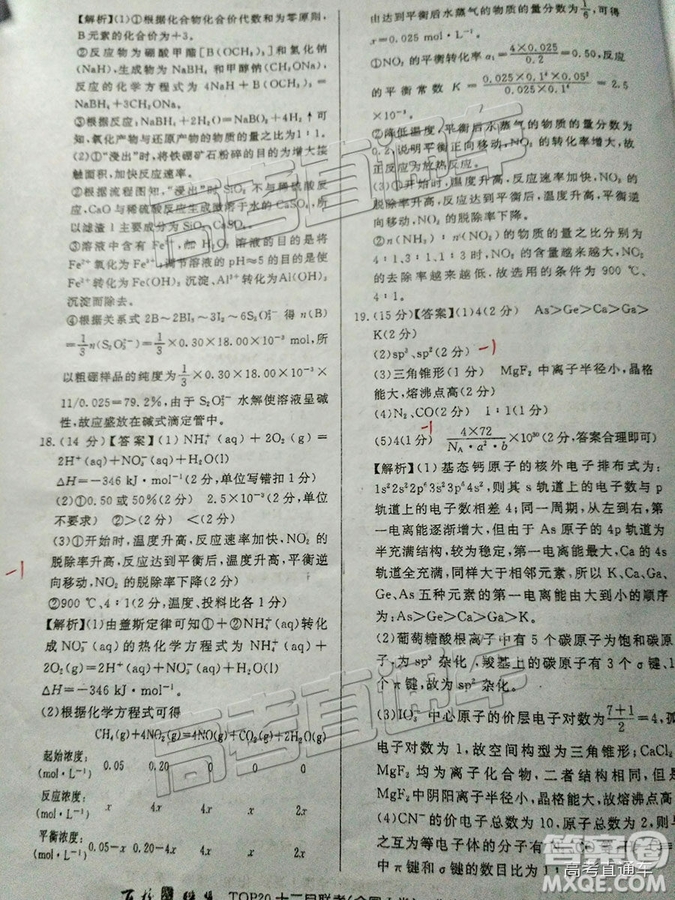 【解析】(1)①根据化合物化合价代数和为零原则,
B元素的化合价为+3。
②反应物为硼酸甲酯[B(OCH₃)₃]和氢化钠
(NaH),生成物为NaBH₄和甲醇钠(CH₃ONa),
反应的化学方程式为4NaH+B(OCH₃)₃═
NaBH₄+3CH₃ONa。
③根据反应:NaBH₄+2H₂O═NaBO₂+4H₂↑可
知,氧化产物与还原产物的物质的量之比为1∶1。
(2)①"浸出"时,将铁硼矿石粉碎的目的为增大接
触面积,加快反应速率。
②根据流程图知,"浸出"时SiO₂不与稀硫酸反
应,CaO与稀硫酸反应生成微溶于水的CaSO₄,所
以滤渣1主要成分为SiO₂、CaSO₄。
③溶液中含有Fe²⁺,加H₂O₂溶液的目的是将
Fe²⁺氧化为Fe³⁺,调节溶液的pH≈5的目的是使
Fe³⁺转化为Fe(OH)₃沉淀、Al³⁺转化为Al(OH)₃
沉淀而除去。
④根据关系式2B~2BI₃~3I₂~6S₂O₃²⁻得n(B)
=1/3 n(S₂O₃²⁻)=1/3×0.30×18.00×10⁻³ mol,所
以粗硼样品的纯度为1/3×0.30×18.00×10⁻³×
11/0.025=79.2%,由于S₂O₃²⁻水解使溶液呈碱
性,故应盛放在碱式滴定管中。
18.(14分)【答案】(1)NH₄⁺(aq)+2O₂(g)=
2H⁺(aq)+NO₃⁻(aq)+H₂O(l)
ΔH=-346 kJ·mol⁻¹(2分,单位写错扣1分)
(2)①0.50或50%(2分) 2.5×10⁻³(2分,单位
不要求) ②>(2分) <(2分)
(3)①开始时,温度升高,反应速率加快,NO₂的
脱除率升高,反应达到平衡后,温度升高,平衡逆
向移动,NO₂的脱除率下降(2分)
-1
②900 ℃、4∶1(2分,温度、投料比各1分)
【解析】(1)由盖斯定律可知①+②NH₄⁺(aq)转化
成NO₃⁻(aq)的热化学方程式为NH₄⁺(aq)+
2O₂(g)=2H⁺(aq)+NO₃⁻(aq)+H₂O(l)
ΔH=-346 kJ·mol⁻¹。
(2)根据化学方程式可得
CH₄(g)+4NO₂(g)=4NO(g)+CO₂(g)+2H₂O(g)
起始浓度:
(mol·L⁻¹) 0.05 0.20 0 0 0
反应浓度:
(mol·L⁻¹) x 4x 4x x 2x
平衡浓度:
(mol·L⁻¹) 0.05-x 0.20-4x 4x x 2x
由达到平衡后水蒸气的物质的量分数为1/6,可得
x=0.025 mol·L⁻¹。
①NO₂的平衡转化率α₁=(4×0.025)/0.2=0.50,反应
的平衡常数K=(0.025×0.1⁴×0.05²)/(0.025×0.1⁴)=2.5
×10⁻³。
②降低温度,平衡后水蒸气的物质的量分数为
0.2,说明平衡正向移动,NO₂的转化率增大,故
正反应为放热反应。
(3)①开始时,温度升高,反应速率加快,NO₂的
脱除率升高,反应达到平衡后,温度升高,平衡逆
向移动,NO₂的脱除率下降。
②n(NH₃)∶n(NO₂)的物质的量之比分别为
4∶1,3∶1,1∶3时,NO₂的含量越来越大,NO₂
的去除率越来越低,故选用的条件为900 ℃、
4∶1。
19.(15分)【答案】(1)4(2分) As>Ge>Ca>Ga>
K(2分)
(2)sp³、sp²(2分) -1
(3)三角锥形(1分) MgF₂中离子半径小,晶格
能大,熔沸点高(2分)
(4)N₂、CO(2分)
-1
(5)4(1分) (4×72)/(N_A·a²·b)×10³⁰(2分,答案合理即可)
【解析】(1)基态钙原子的核外电子排布式为:
1s²2s²2p⁶3s²3p⁶4s²,则其s轨道上的电子数与p
轨道上的电子数之比为2∶3。同一周期,从左到右,第
一电离能逐渐增大,但由于As原子的4p轨道为
半充满结构,较为稳定,第一电离能最大,Ca的4s
轨道全充满,同样大于相邻元素,所以K、Ca、Ga、
Ge、As五种元素的第一电离能由大到小的顺序
为:As>Ge>Ca>Ga>K。
(2)葡萄糖酸根离子中有5个碳原子为饱和碳原
子,为sp³杂化,羧基上的碳原子有3个σ键、1
个π键,故为sp²杂化。
(3)IO₃⁻中心原子的价层电子对数为(7+1)/2=4,孤
电子对数为1,故空间构型为三角锥形;CaCl₂
MgF₂均为离子化合物,二者结构相同,但
MgF₂中阴阳离子半径小,晶格能大,故熔沸点高
(4)CN⁻的价电子总数为10,原子总数为2,与
之互为等电子体的分子
个σ键,2个π键
TOP20十二月联考(全国
高考直通车
高考直通车
答案圈
MXQE.COM
高考直通车